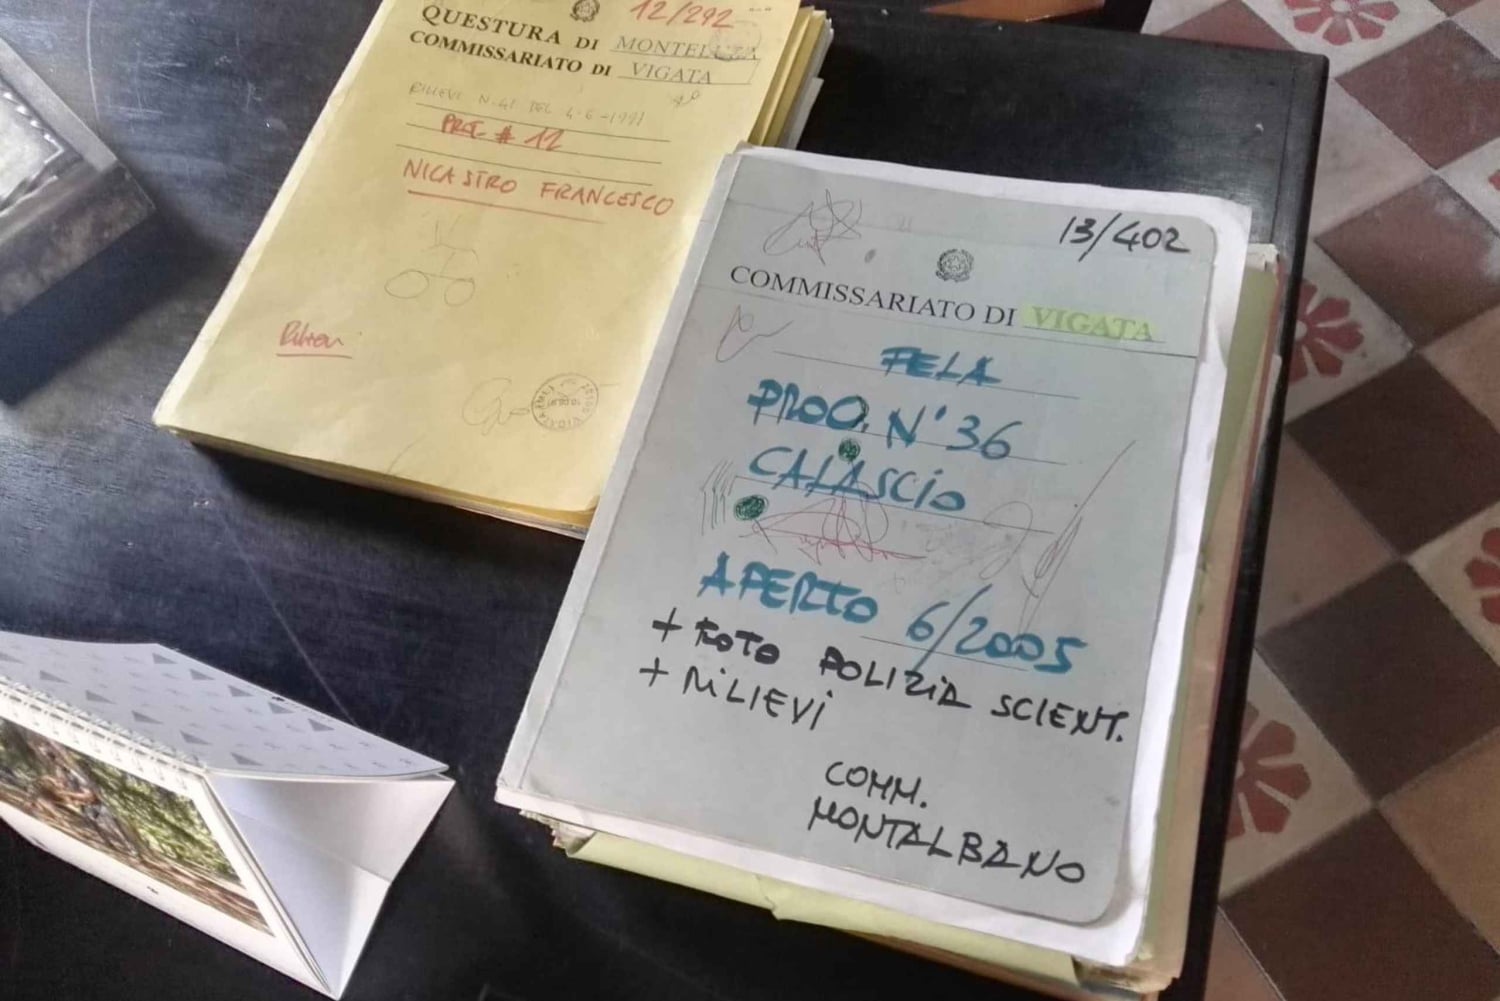 12/292
QUESTURA DI MONTELUSA
COMMISSARIATO DI VIGATA
RILIEVI N. 41 DEL 4-6-1991
PROT. # 12
NICASTRO FRANCESCO
13/402
COMMISSARIATO DI VIGATA
FELA
PROC. N° 36
CALASCIO
APERTO 6/2005
+ FOTO POLIZIA SCIENT.
+ RILIEVI
COMM.
MONTALBANO